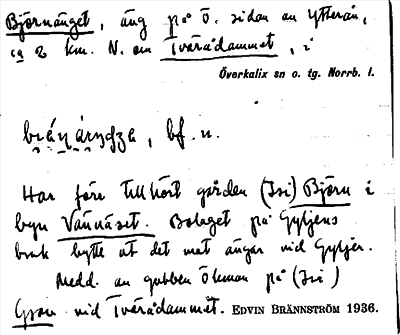 Björnänget, äng på ö. sidan av Ytterån,
ca 2 km. N. om Tvärådammet, i
Överkalix sn o. tg. Norrb. l.
bf. n.
Har förr tillhört gården (Isi) Björn i
byn Vännäset. Bolaget på Gyljens
bruk bytte åt det mot ängar vid Gyljen.
Medd. av gubben Ökman på (Isi)
Gran vid Tvärådammet. EDVIN BRÄNNSTRÖM 1936.